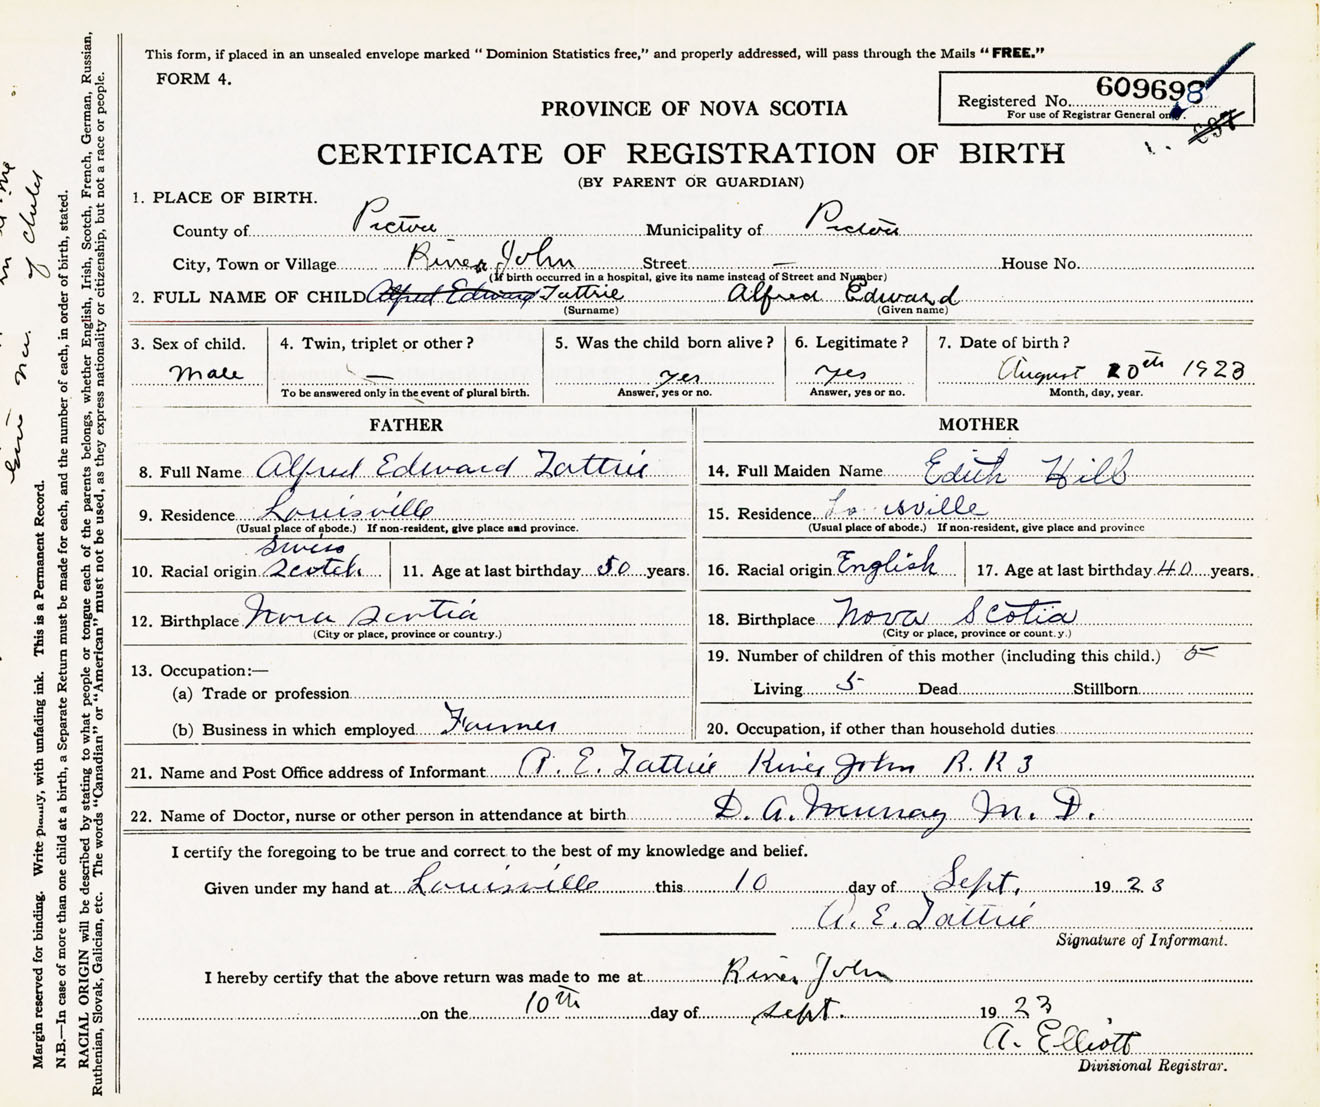 This form, if placed in an unsealed envelope marked "Dominion Statistics free," and properly addressed, will pass through the Mails "FREE."
FORM 4.
PROVINCE OF NOVA SCOTIA
Registered No. 609698
For use of Registrar General only.
297
CERTIFICATE OF REGISTRATION OF BIRTH
(BY PARENT OR GUARDIAN)
1. PLACE OF BIRTH.
County of Pictou Municipality of Pictou
City, Town or Village River John Street — House No.
(If birth occurred in a hospital, give its name instead of Street and Number)
2. FULL NAME OF CHILD Alfred Edward Tattrie Alfred Edward
(Surname) (Given name)
3. Sex of child. 4. Twin, triplet or other? 5. Was the child born alive? 6. Legitimate? 7. Date of birth?
Male — yes yes August 20th 1923
To be answered only in the event of plural birth. Answer, yes or no. Answer, yes or no. Month, day, year.
FATHER MOTHER
8. Full Name Alfred Edward Tattrie 14. Full Maiden Name Edith Hill
9. Residence Louisville 15. Residence Lo isville
(Usual place of abode.) If non-resident, give place and province. (Usual place of abode.) If non-resident, give place and province
Swiss
10. Racial origin Scotch 11. Age at last birthday 50 years. 16. Racial origin English 17. Age at last birthday 40 years.
12. Birthplace Nova Scotia 18. Birthplace Nova Scotia
(City or place, province or country.) (City or place, province or count.y.)
13. Occupation:— 19. Number of children of this mother (including this child.) 5
(a) Trade or profession Living 5 Dead Stillborn
(b) Business in which employed Farmer 20. Occupation, if other than household duties
21. Name and Post Office address of Informant A. E. Tattrie River John R. R 3
22. Name of Doctor, nurse or other person in attendance at birth D. A. Murray M. D.
I certify the foregoing to be true and correct to the best of my knowledge and belief.
Given under my hand at Louisville this 10 day of Sept. 1923
A. E. Tattrie
Signature of Informant.
I hereby certify that the above return was made to me at River John
on the 10th day of Sept. 1923
A. Elliott
Divisional Registrar.
Margin reserved for binding. Write plainly, with unfading ink. This is a Permanent Record.
N.B.—In case of more than one child at a birth, a Separate Return must be made for each, and the number of each, in order of birth, stated.
RACIAL ORIGIN will be described by stating to what people or tongue each of the parents belongs, whether English, Irish, Scotch, French, German, Russian,
Ruthenian, Slovak, Galician, etc. The words "Canadian" or "American" must not be used, as they express nationality or citizenship, but not a race or people.
of child